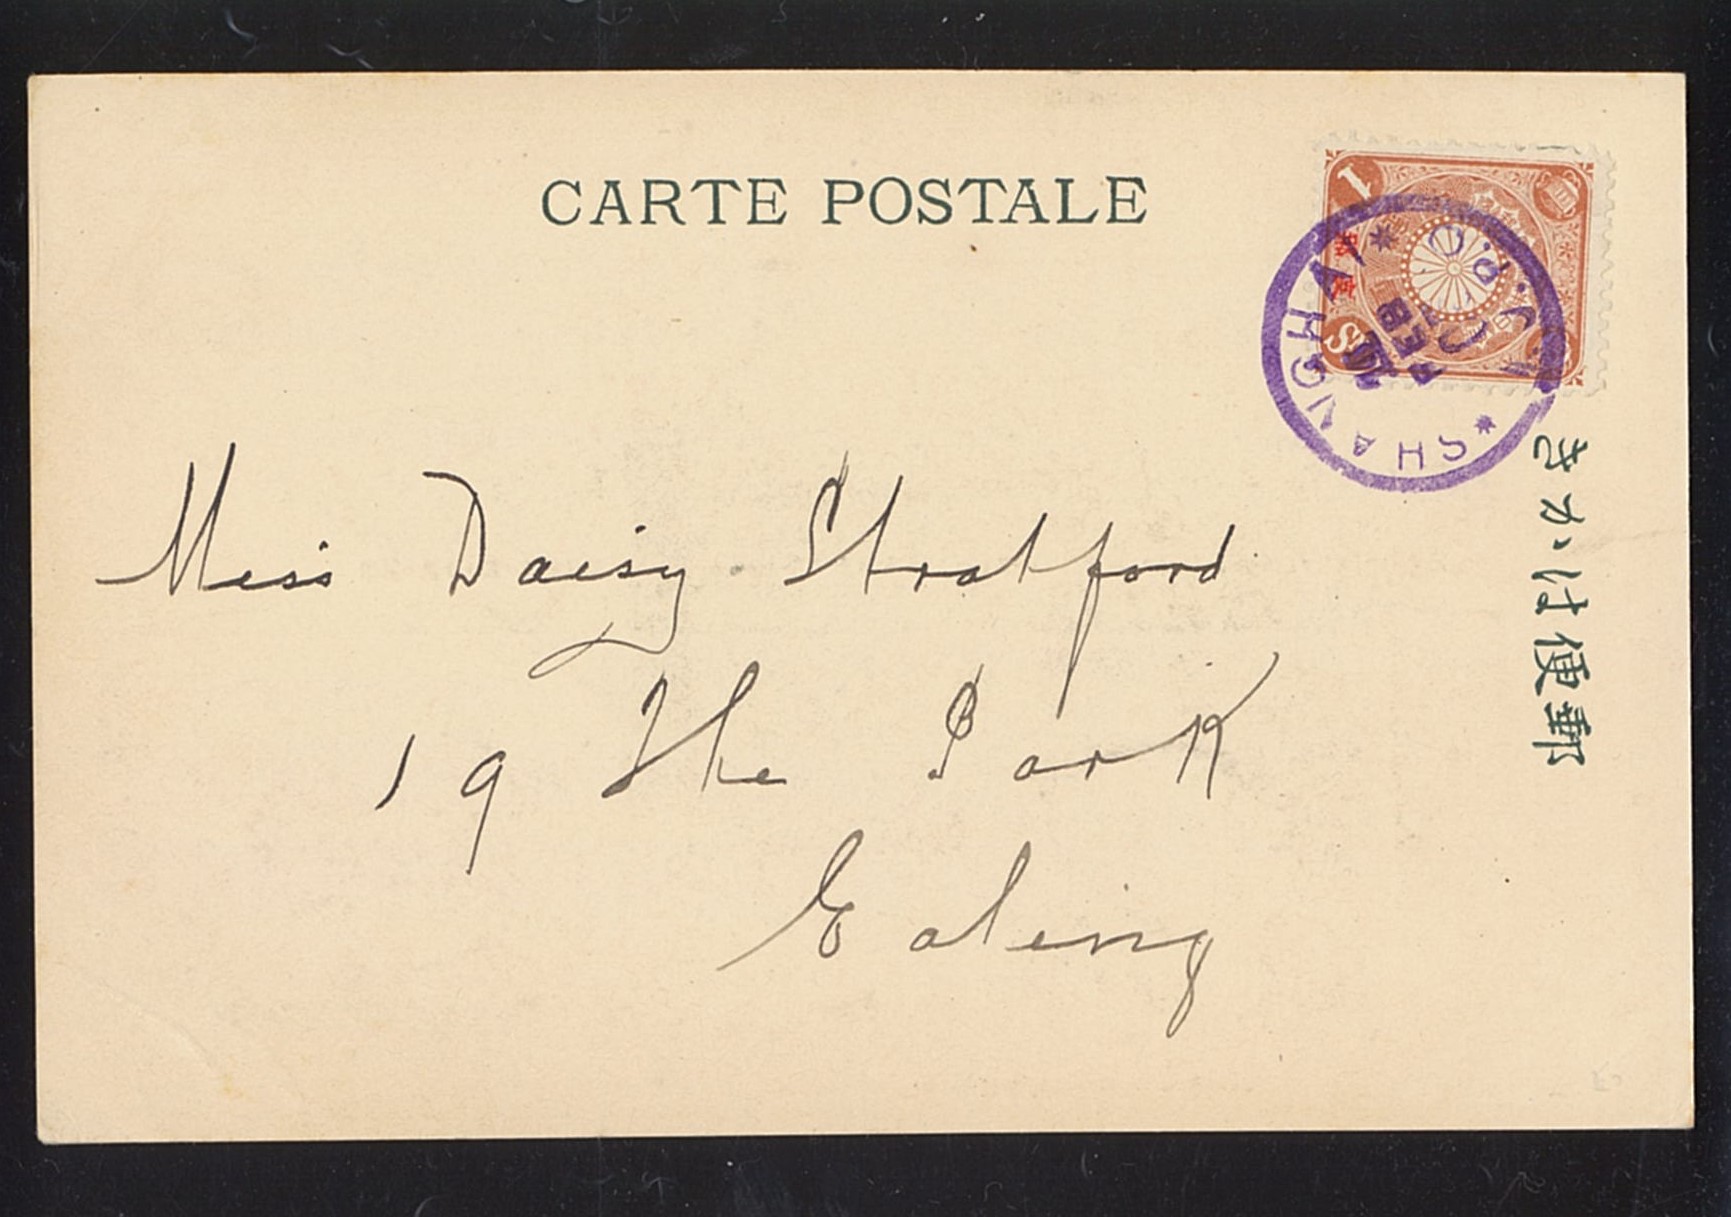 CARTE POSTALE
1
SHANGHAI
I.J.P.O.
10
FEB
Miss Daisy Stratford
19 The Park
Ealing
郵便はがき